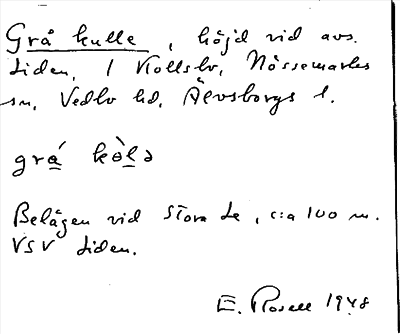 Grå kulle, höjd vid avs.
Liden, 1 Kollsbo, Nössemarks
sn, Vedbo hd, Älvsborgs l.
grá kòlə
Belägen vid Stora Le, c:a 100 m.
VSV Liden.
E. Rosell 1948